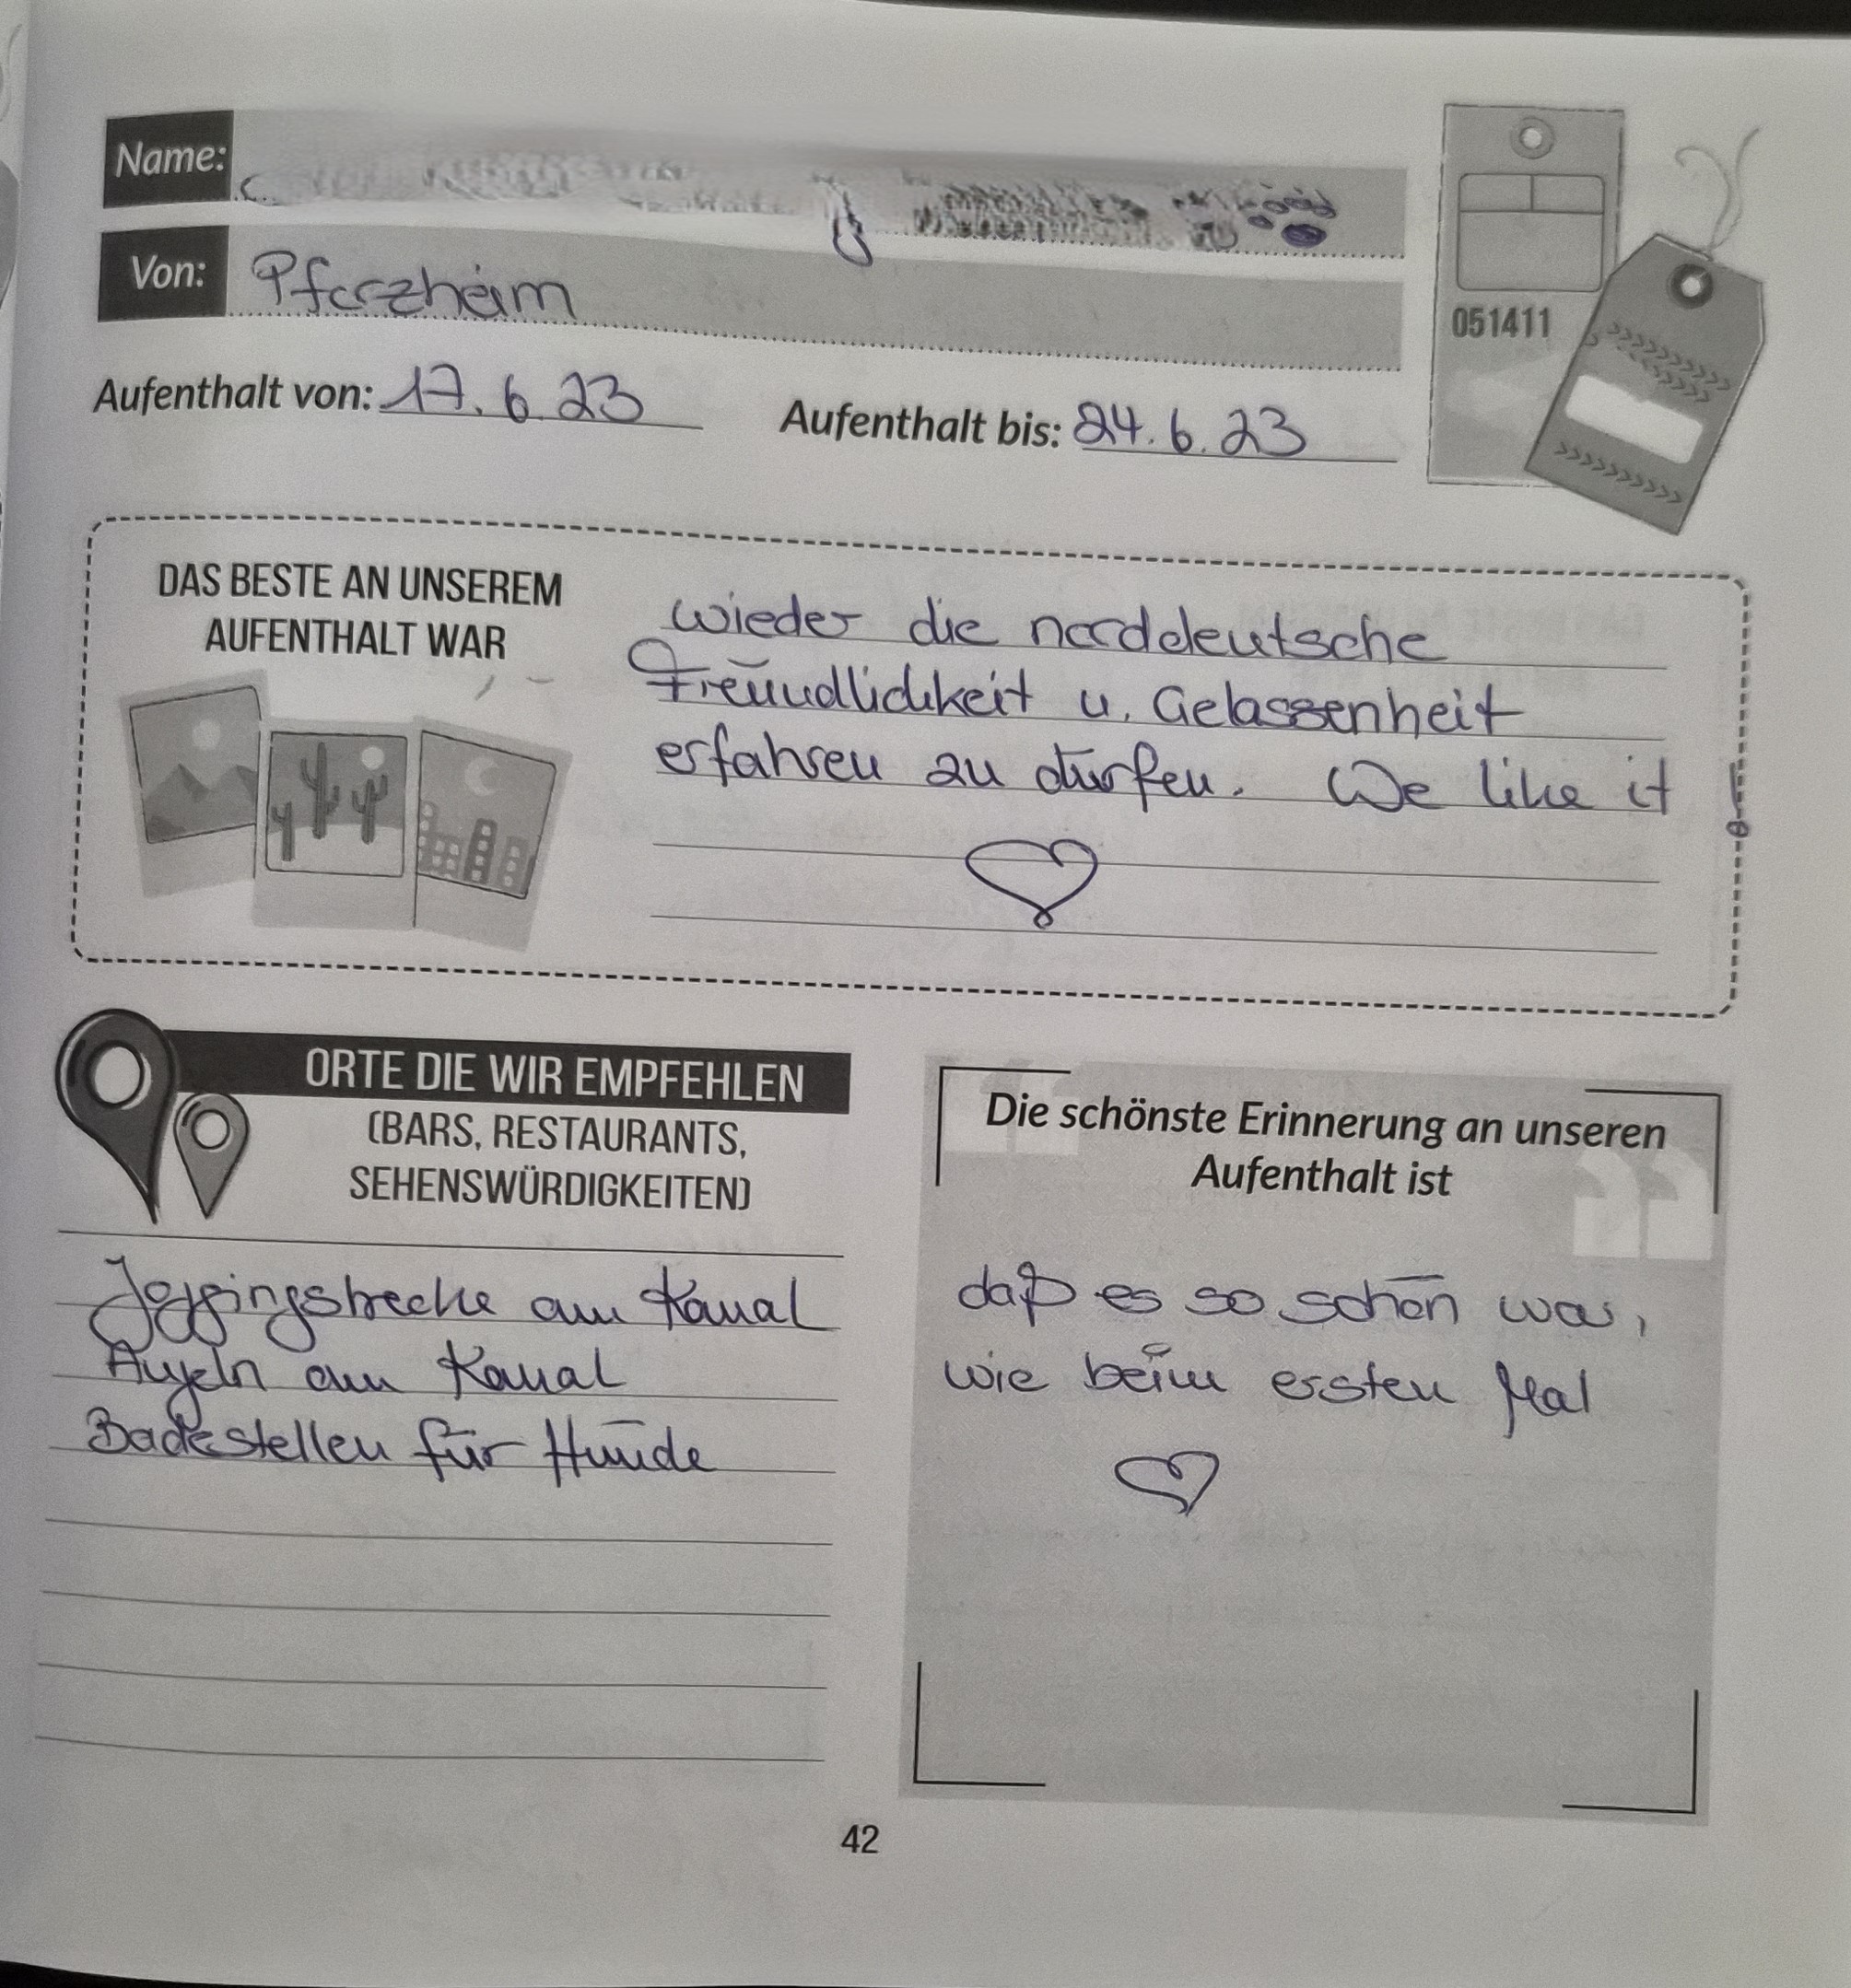 Name:
Von: Pforzheim
Aufenthalt von: 17.6.23
Aufenthalt bis: 24.6.23
051411
DAS BESTE AN UNSEREM
AUFENTHALT WAR
wieder die norddeutsche
Freundlichkeit u. Gelassenheit
erfahren zu dürfen. We like it!
ORTE DIE WIR EMPFEHLEN
(BARS, RESTAURANTS,
SEHENSWÜRDIGKEITEN)
Joggingstrecke am Kanal
Angeln am Kanal
Badestellen für Hunde
Die schönste Erinnerung an unseren
Aufenthalt ist
daß es so schön war,
wie beim ersten Mal
42